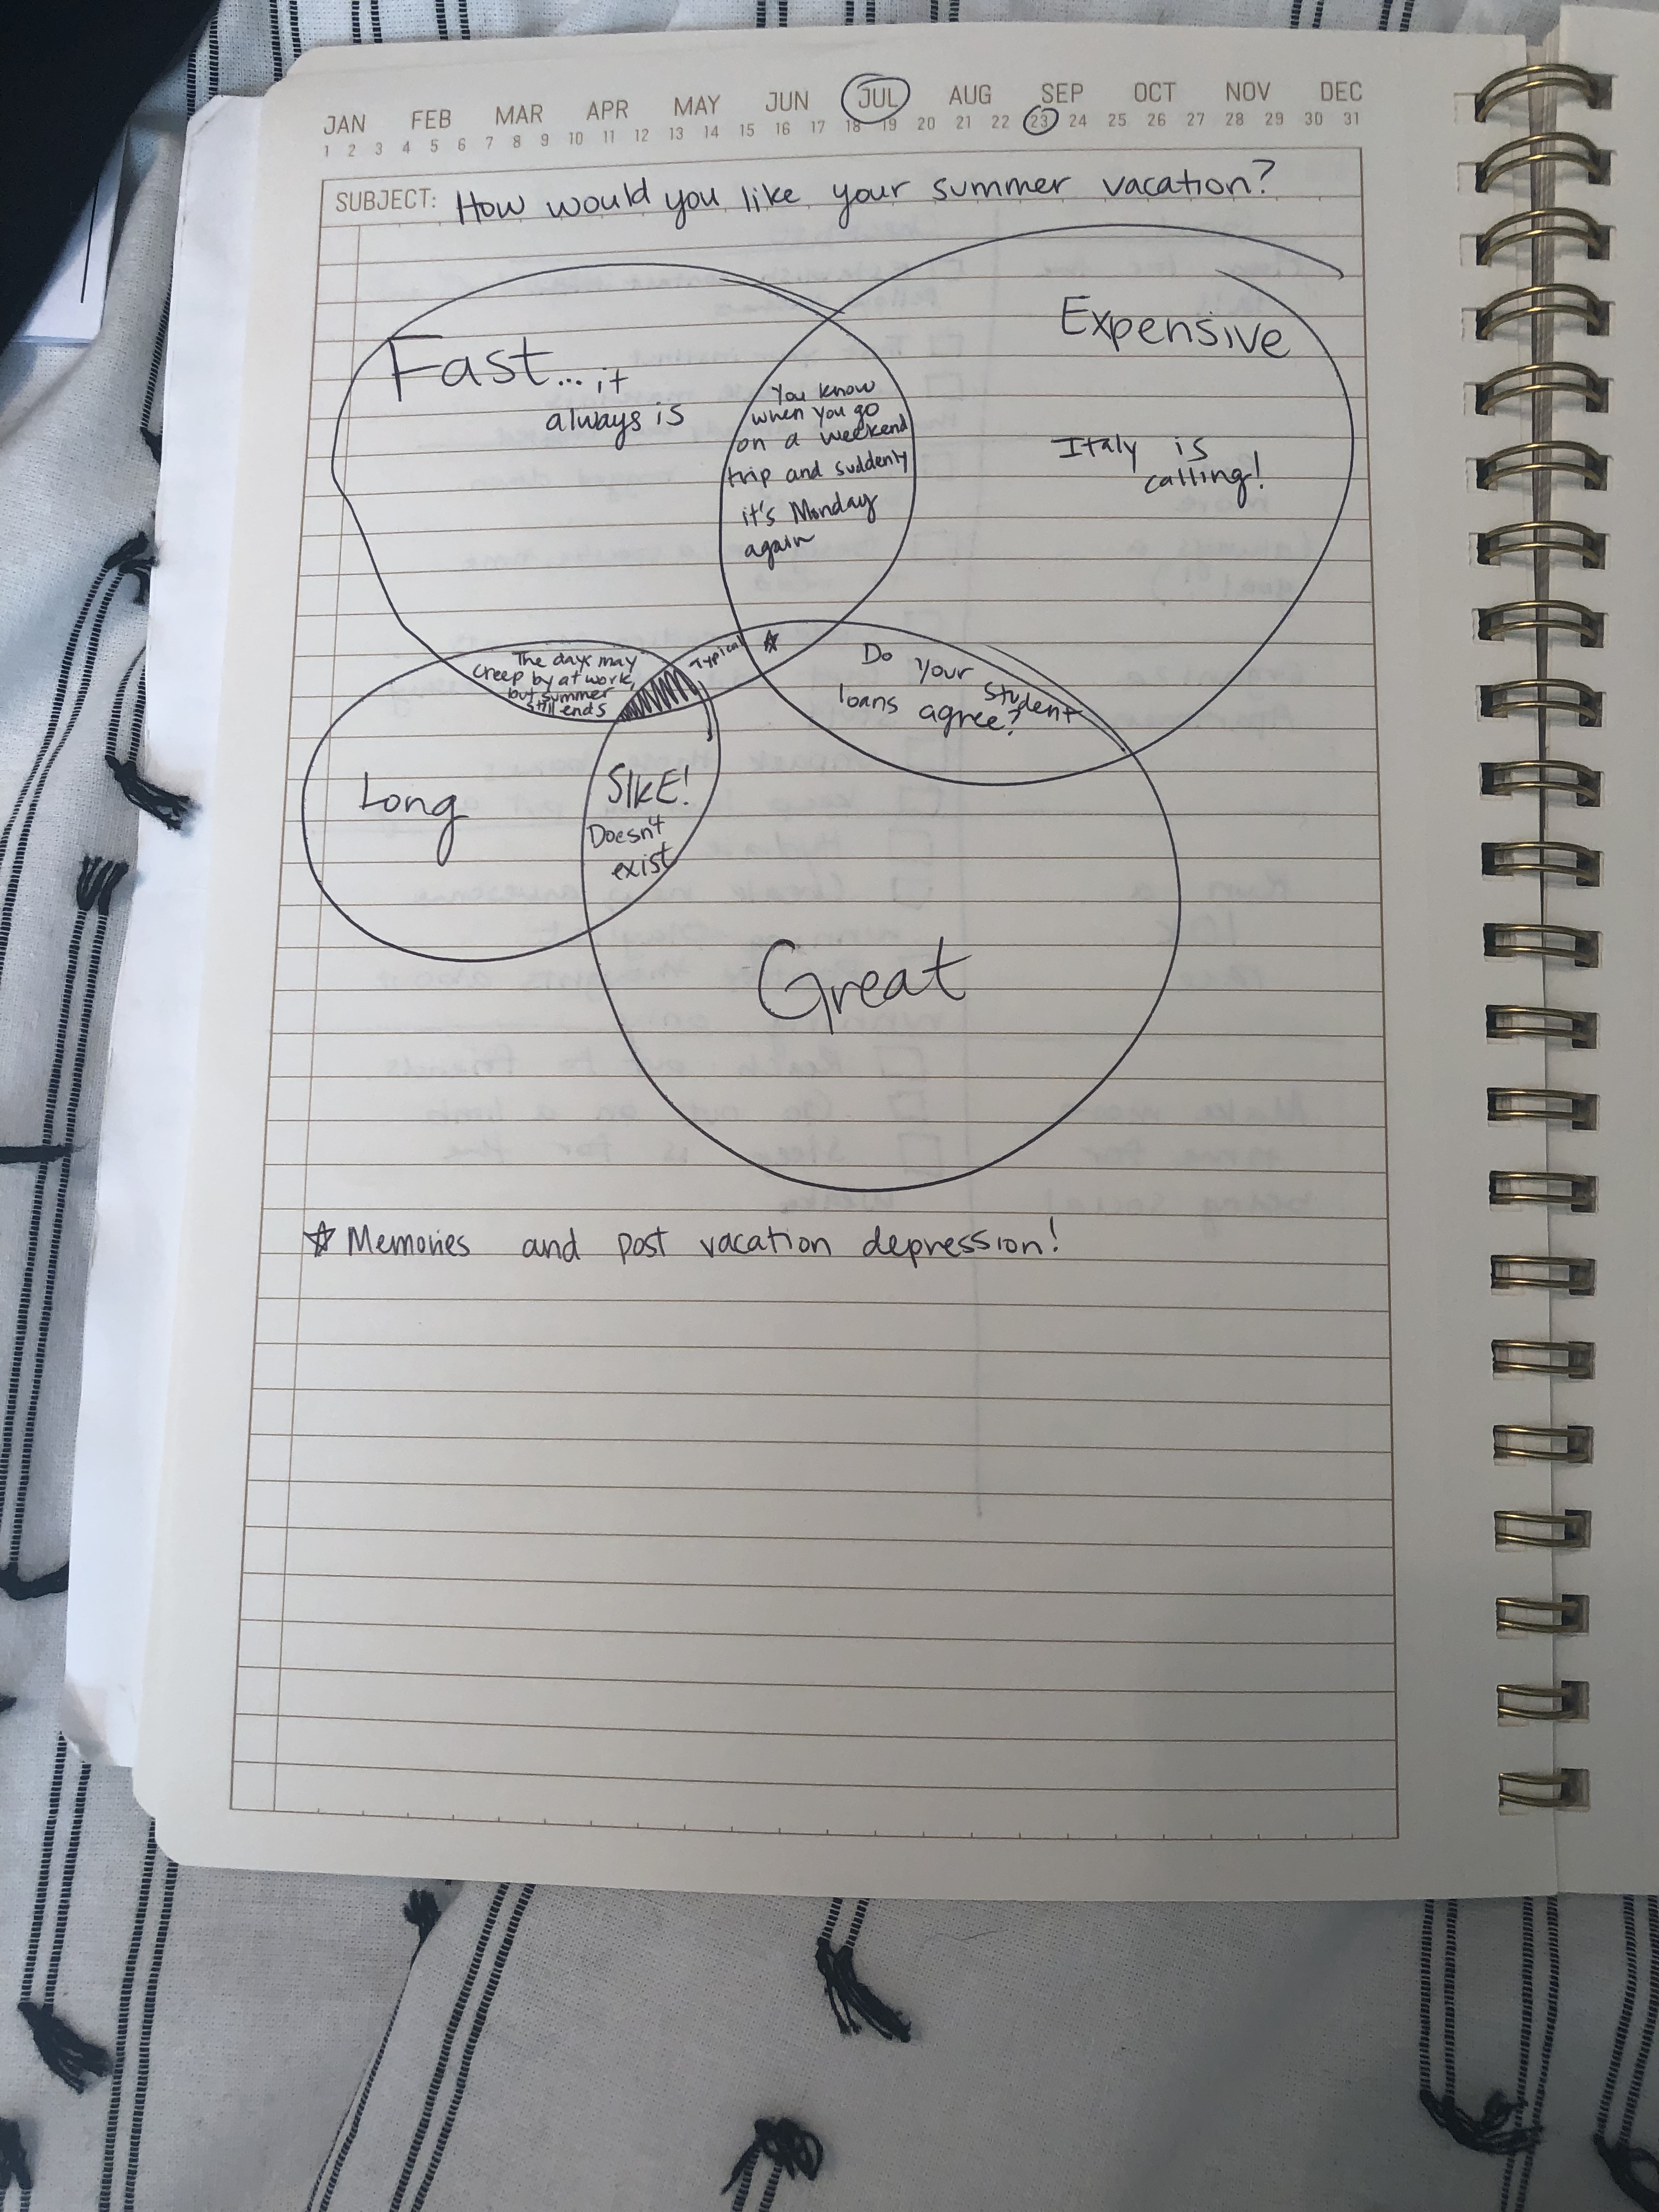 JAN FEB MAR APR MAY JUN JUL AUG SEP OCT NOV DEC
1 2 3 4 5 6 7 8 9 10 11 12 13 14 15 16 17 18 19 20 21 22 23 24 25 26 27 28 29 30 31
SUBJECT: How would you like your summer vacation?
Fast... it
always is
Expensive
Italy is
calling!
You know
when you go
on a weekend
trip and suddenly
it's Monday
again
The days may
creep by at work,
but summer
still ends
Typical
☆
Do your
student
loans agree?
Long
SIKE!
Doesn't
exist
Great
☆ Memories and post vacation depression!